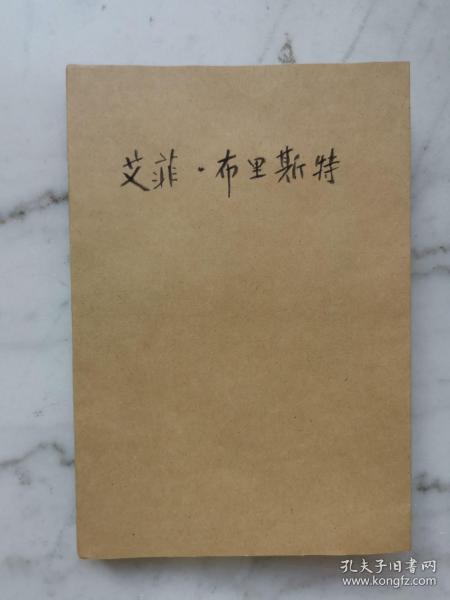 艾菲·布里斯特
孔夫子旧书网
www.kongfz.com